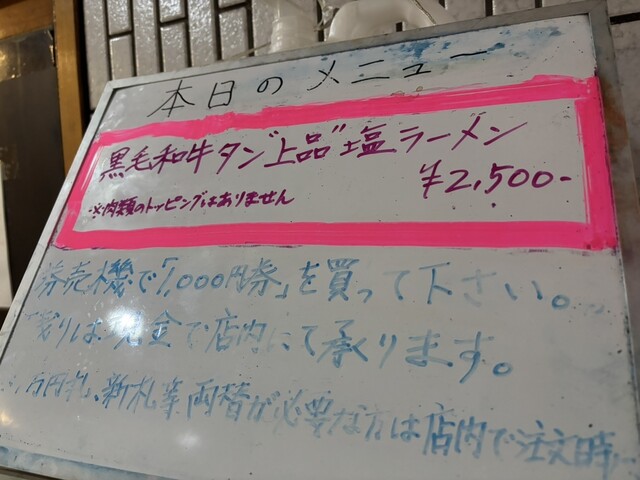 本日のメニュー
黒毛和牛タン"上品"塩ラーメン
¥2,500-
※肉類のトッピングはありません
券売機で「1,000円券」を買って下さい。
残りは現金で店内にて承ります。
万円札、新札等両替が必要な方は店内で注文時